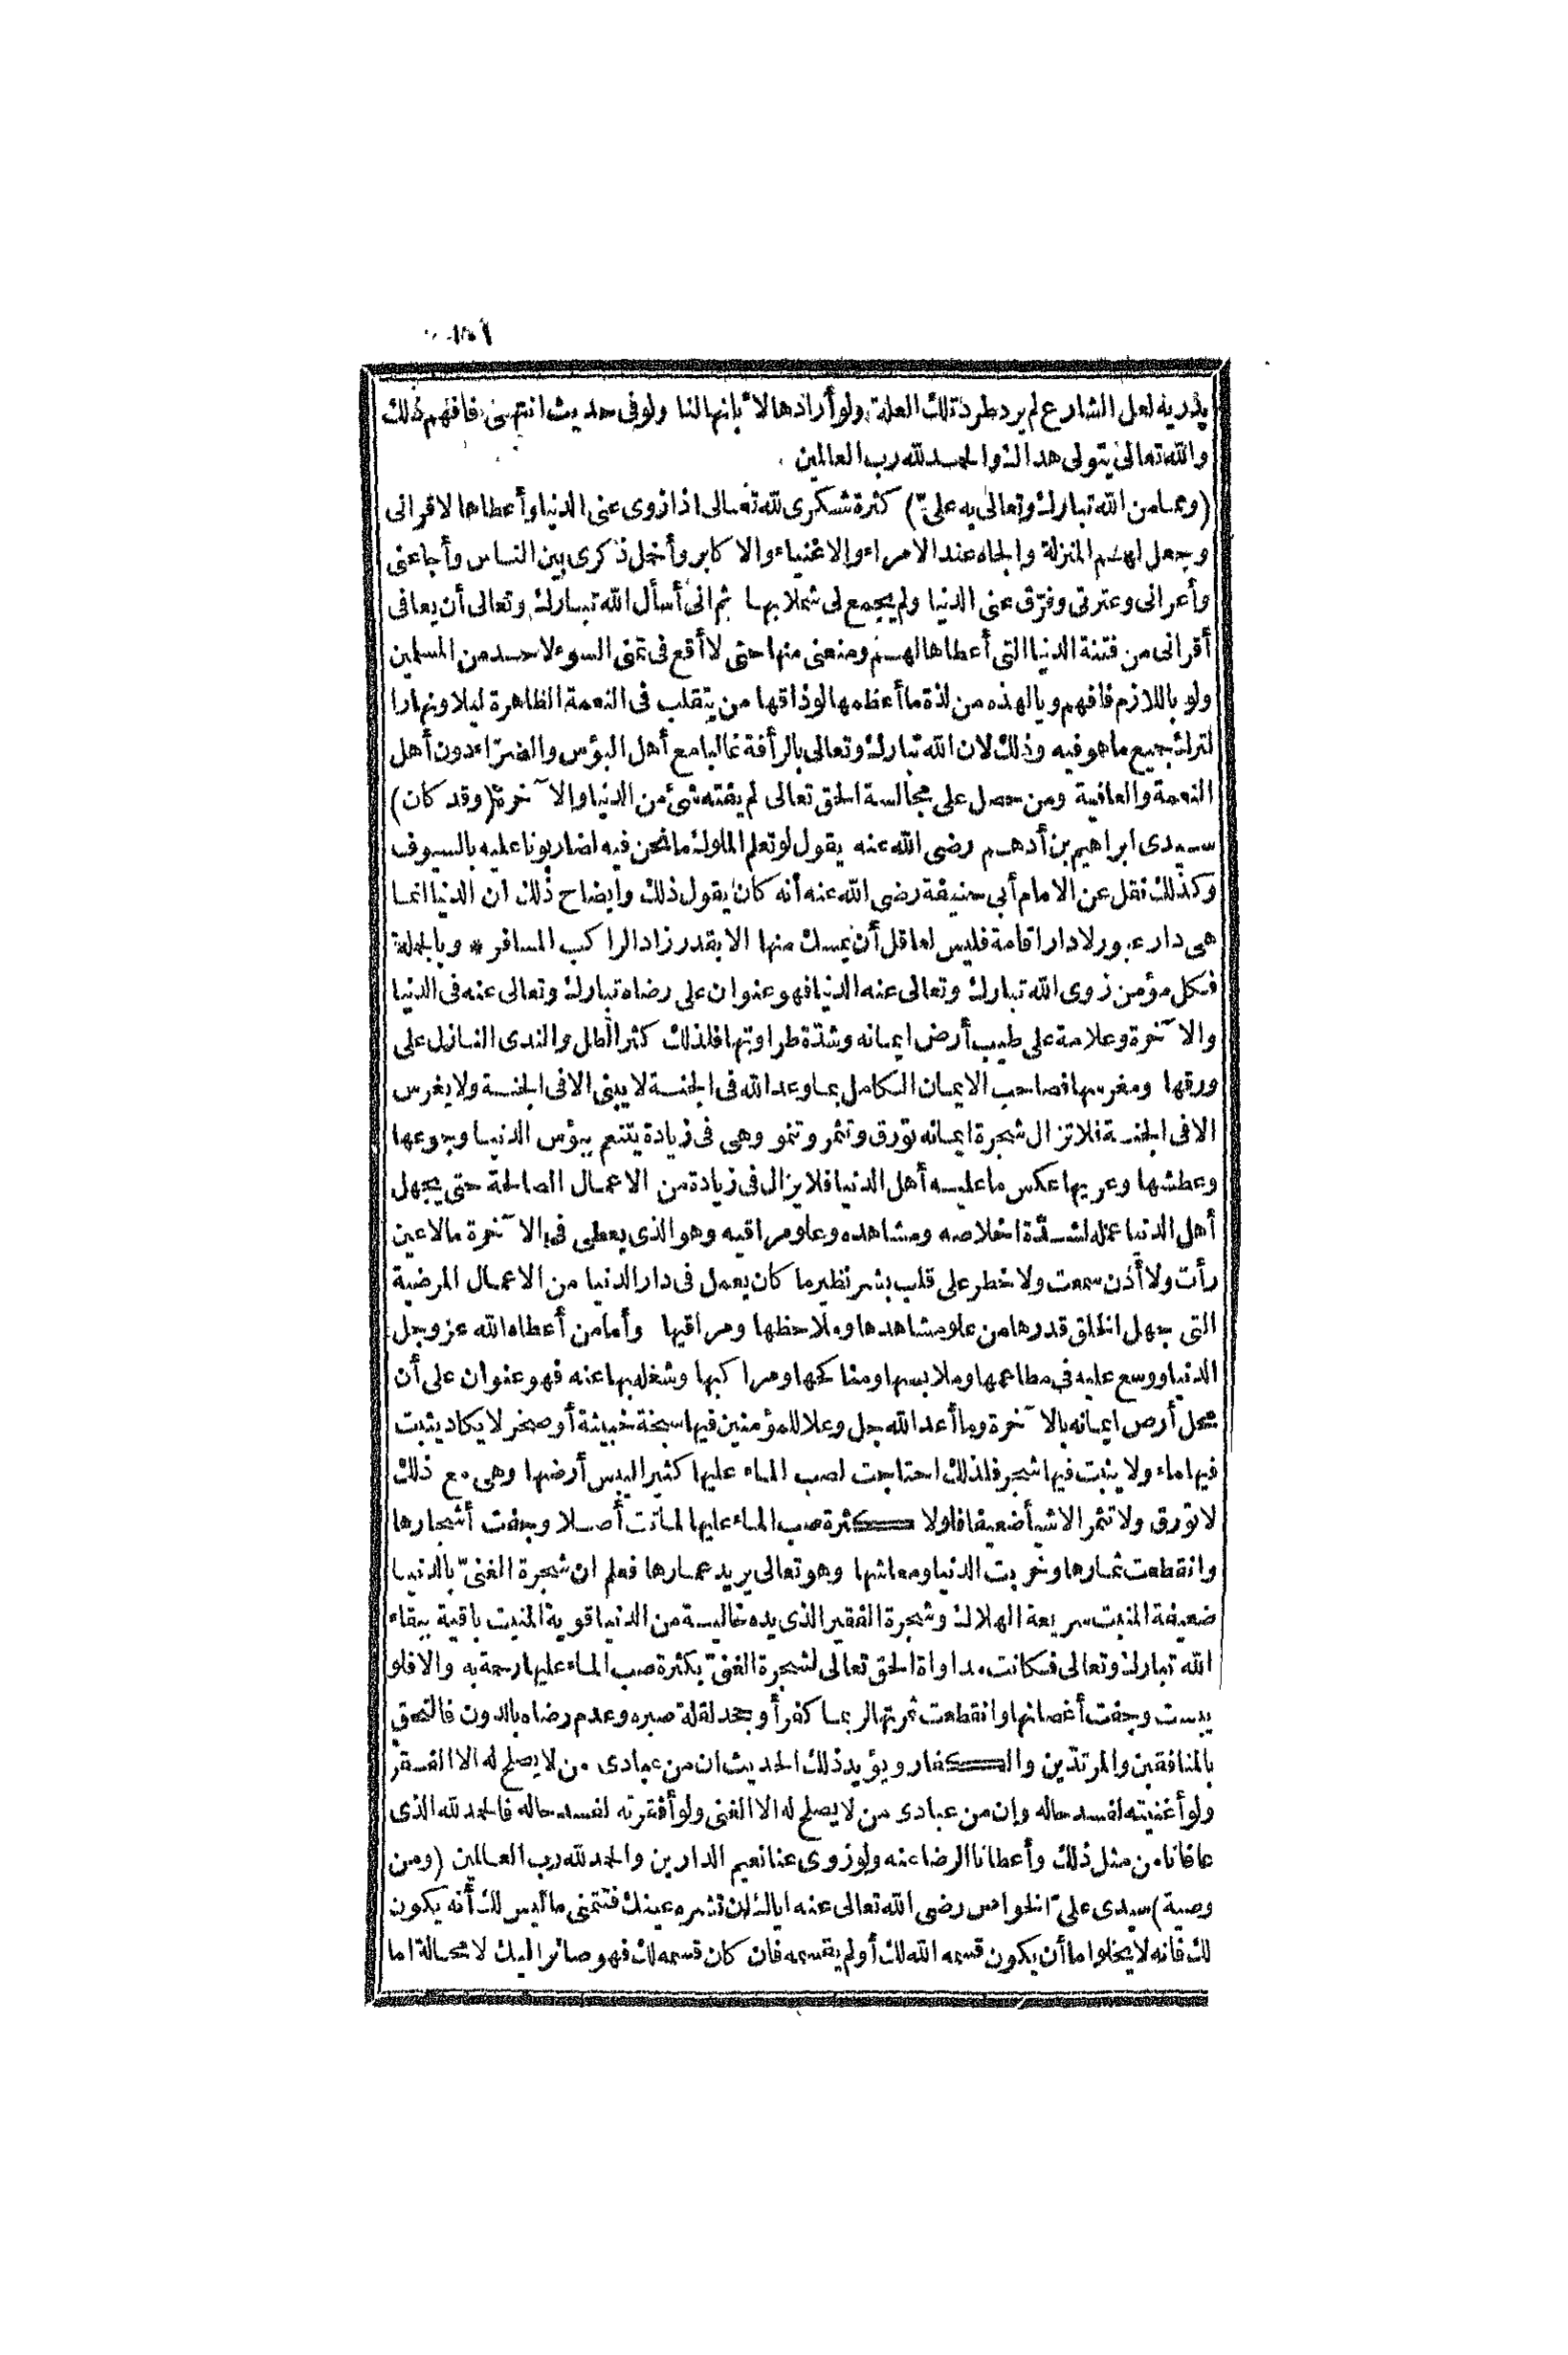 يدريه لعل الشارع لم يرد طرد تلك العلة ولو أرادها لأبانها لنا ولو في حديث انتهى فافهم ذلك
والله تعالى يتولى هداك والحمد لله رب العالمين
(ومما من الله تبارك وتعالى به علىّ) كثرة شكرى لله تعالى اذا زوى عنى الدنيا وأعطاها لاقرانى
وجعل لهم المنزلة والجاه عند الامراء والاغنياء والاكابر وأخمل ذكرى بين الناس وأجاعنى
وأعرانى وعترتى وفرّق عنى الدنيا ولم يجمع لى شملا بها ثم انى أسأل الله تبارك وتعالى أن يعافى
أقرانى من فتنة الدنيا التى أعطاها لهم ومنعنى منها حتى لا أقع فى تمنى السوء لاحد من المسلمين
ولو باللازم فافهم ويا لهذه من لذة ما أعظمها لو ذاقها من يتقلب فى النعمة الظاهرة ليلا ونهارا
لترك جميع ما هو فيه وذلك لان الله تبارك وتعالى بالرأفة غالبا مع أهل البؤس والضرّاء دون أهل
النعمة والعافية ومن حصل على مجالسة الحق تعالى لم يفته شئ من الدنيا والآخرة (وقد كان)
سيدى ابراهيم بن أدهم رضى الله عنه يقول لو تعلم الملوك ما نحن فيه لضاربونا عليه بالسيوف
وكذلك نقل عن الامام أبي حنيفة رضى الله عنه أنه كان يقول ذلك وايضاح ذلك ان الدنيا انما
هى دار عبور لا دار اقامة فليس لعاقل أن يمسك منها الا بقدر زاد الراكب المسافر * وبالجملة
فكل مؤمن زوى الله تبارك وتعالى عنه الدنيا فهو عنوان على رضاه تبارك وتعالى عنه فى الدنيا
والآخرة وعلامة على طيب أرض ايمانه وشدّة طراوتها فلذلك كثر الطل والندى النازل على
ورقها ومغرسها فصاحب الايمان الكامل بما وعد الله فى الجنة لا يبنى الا فى الجنة ولا يغرس
الا فى الجنة فلا تزال شجرة ايمانه تورق وتثمر وتنمو وهى فى زيادة يتنعم ببؤس الدنيا وجوعها
وعطشها وعريها عكس ما عليه أهل الدنيا فلا يزال فى زيادة من الاعمال الصالحة حتى يجهل
أهل الدنيا عمله لشدّة اخلاصه ومشاهده وعلو مراقيه وهو الذى يعطى فى الآخرة ما لا عين
رأت ولا أذن سمعت ولا خطر على قلب بشر نظير ما كان يعمل فى دار الدنيا من الاعمال المرضية
التى جهل الخلق قدرها من علو مشاهدها وملاحظها ومراقيها وأما من أعطاه الله عز وجل
الدنيا ووسع عليه في مطاعمها وملابسها ومناكحها ومراكبها وشغله بها عنه فهو عنوان على أن
محل أرض ايمانه بالآخرة وما أعد الله جل وعلا للمؤمنين فيها سبخة خبيثة أو صخر لا يكاد يثبت
فيها ماء ولا ينبت فيها شجر فلذلك احتاجت لصب الماء عليها كثير اليبس أرضها وهى مع ذلك
لا تورق ولا تثمر الا شيأ ضعيفا فلولا كثرة صب الماء عليها لماتت أصلا وجفت أشجارها
وانقطعت ثمارها وخربت الدنيا ومعاشها وهو تعالى يريد عمارها فعلم ان شجرة الغنىّ بالدنيا
ضعيفة المنبت سريعة الهلاك وشجرة الفقير الذى يده خالية من الدنيا قوية المنبت باقية ببقاء
الله تبارك وتعالى فكانت مداواة الحق تعالى لشجرة الغنىّ بكثرة صب الماء عليها رحمة به والا فلو
يبست وجفت أغصانها وانقطعت ثمرتها لربما كفر أو جحد لقلة صبره وعدم رضاه بالدون فالتحق
بالمنافقين والمرتدّين والكفار ويؤيد ذلك الحديث ان من عبادى من لا يصلح له الا الفقر
ولو أغنيته لفسد حاله وإن من عبادى من لا يصلح له الا الغنى ولو أفقرته لفسد حاله فالحمد لله الذى
عافانا من مثل ذلك وأعطانا الرضا عنه ولو زوى عنا نعيم الدارين والحمد لله رب العالمين (ومن
وصية) سيدى علىّ الخواص رضى الله تعالى عنه اياك ان تشره عينك فتتمنى ما ليس لك أنه يكون
لك فانه لا يخلو اما أن يكون قسمه الله لك أو لم يقسمه فان كان قسمه لك فهو صائر اليك لا محالة اما